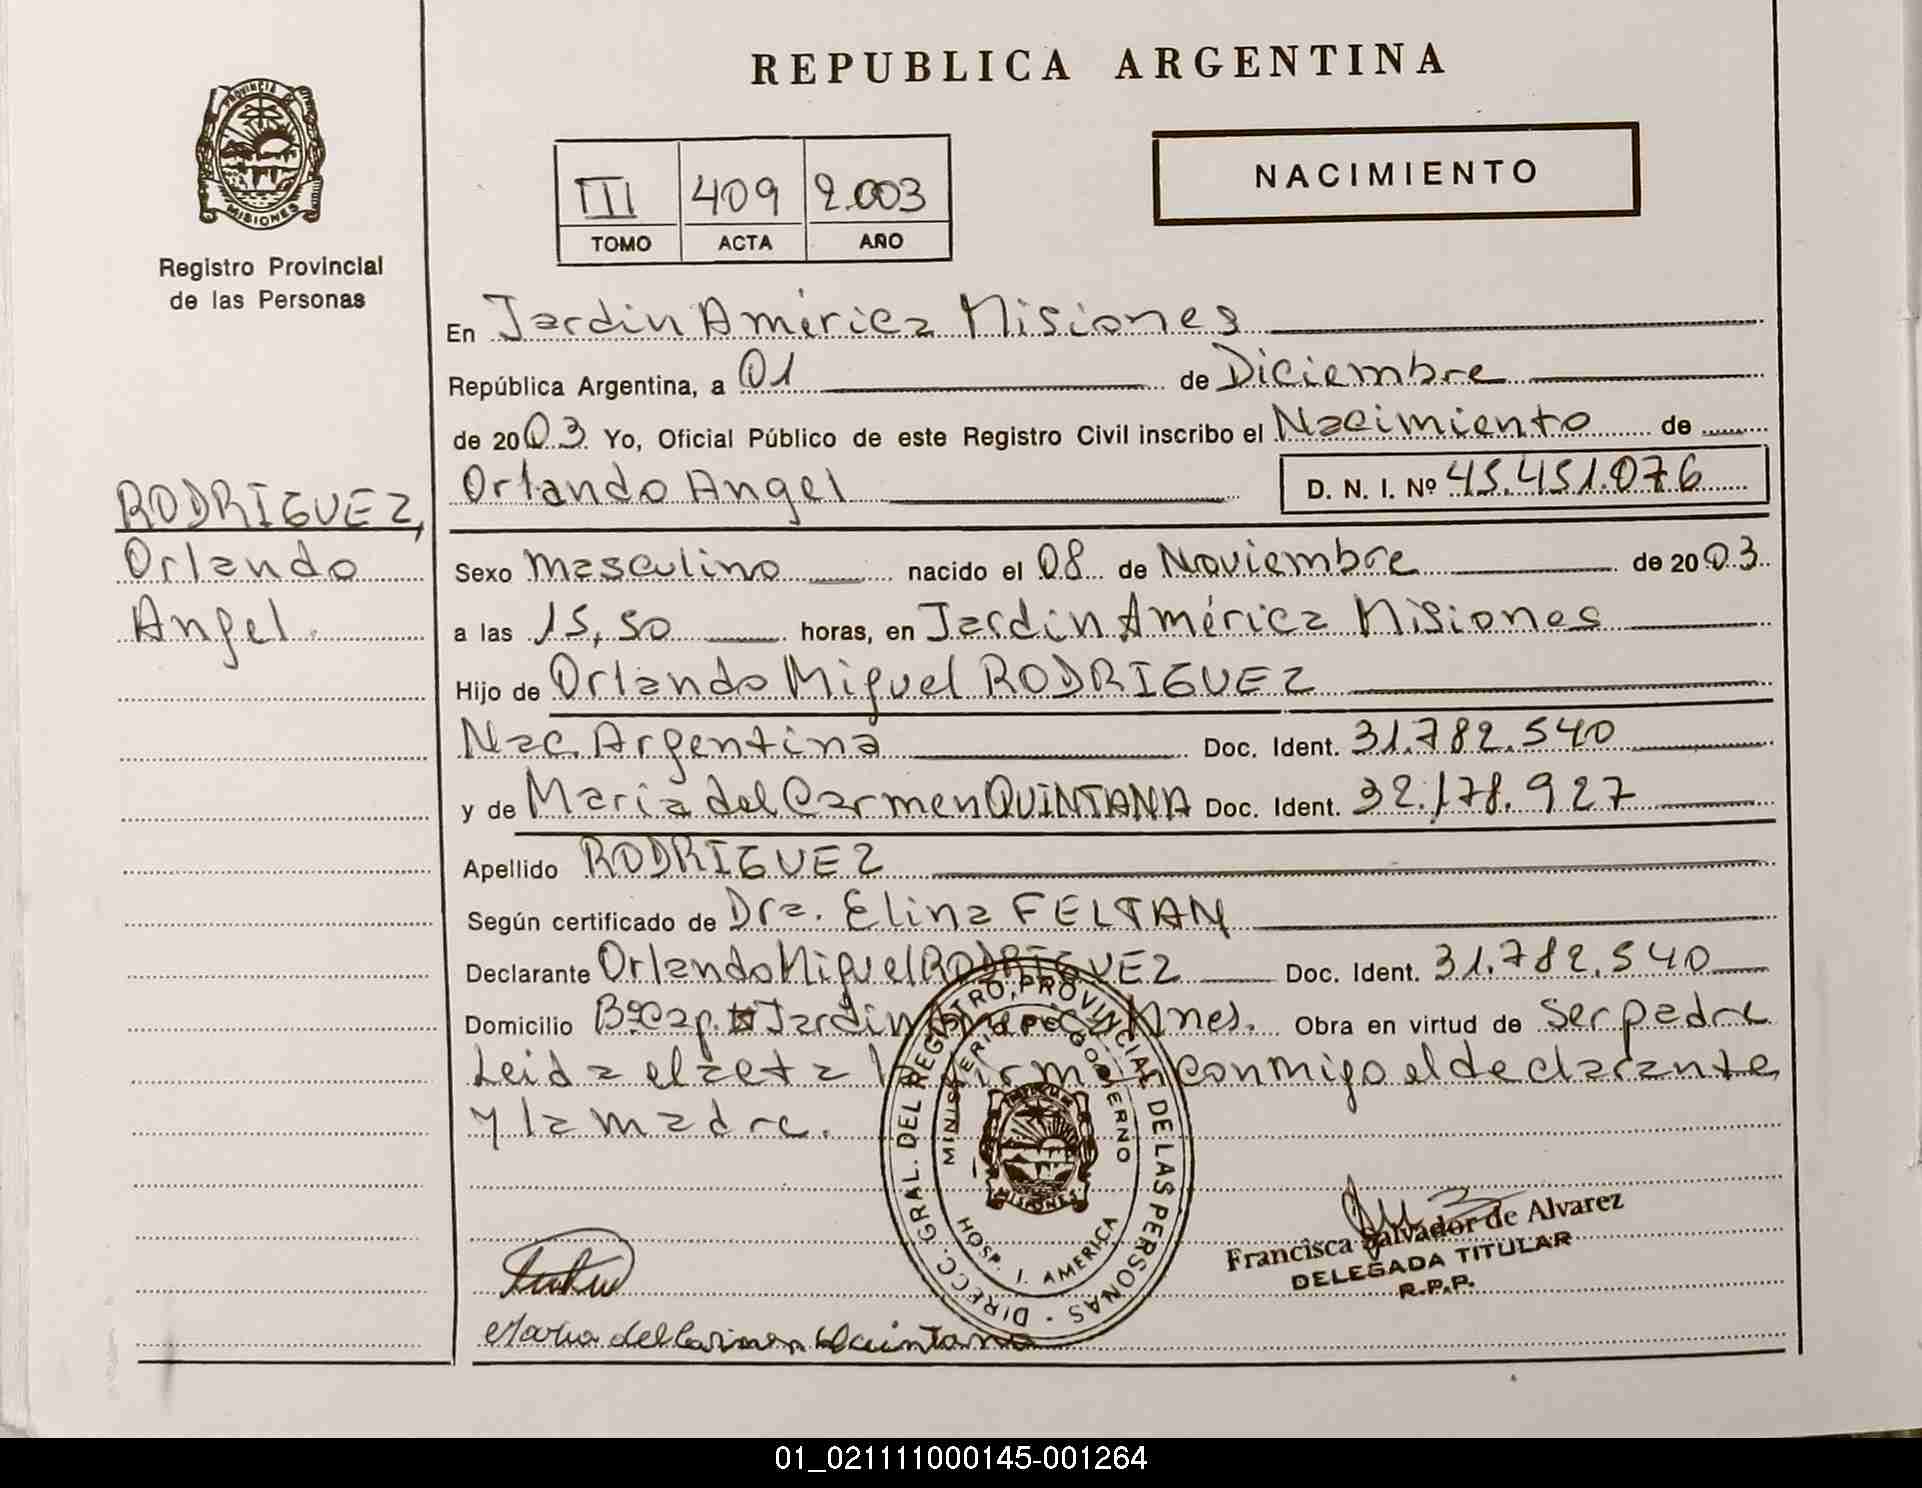 REPUBLICA ARGENTINA
PROVINCIA DE
MISIONES
Registro Provincial
de las Personas
III 409 2.003
TOMO ACTA AÑO
NACIMIENTO
En Jardin América Misiones
República Argentina, a 01 de Diciembre
de 2003 Yo, Oficial Público de este Registro Civil inscribo el Nacimiento de
Orlando Angel D. N. I. Nº 45.451.076
RODRIGUEZ,
Orlando
Angel.
Sexo masculino nacido el 08 de Noviembre de 2003
a las 15,50 horas, en Jardin América Misiones
Hijo de Orlando Miguel RODRIGUEZ
Nac. Argentina Doc. Ident. 31.782.540
y de Maria del Carmen QUINTANA Doc. Ident. 32.178.927
Apellido RODRIGUEZ
Según certificado de Dra. Elina FELTAN
Declarante Orlando Miguel RODRIGUEZ Doc. Ident. 31.782.540
Domicilio BºCap. Jardin America Mnes. Obra en virtud de ser padre
Leida el acta la firma conmigo el declarante
y la madre.
DIRECC. GRAL. DEL REGISTRO PROVINCIAL DE LAS PERSONAS
MINISTERIO DE GOBIERNO
MISIONES
HOSP. J. AMERICA
Francisca Salvador de Alvarez
DELEGADA TITULAR
R.P.P.
Maria del Carmen Quintana
01_021111000145-001264